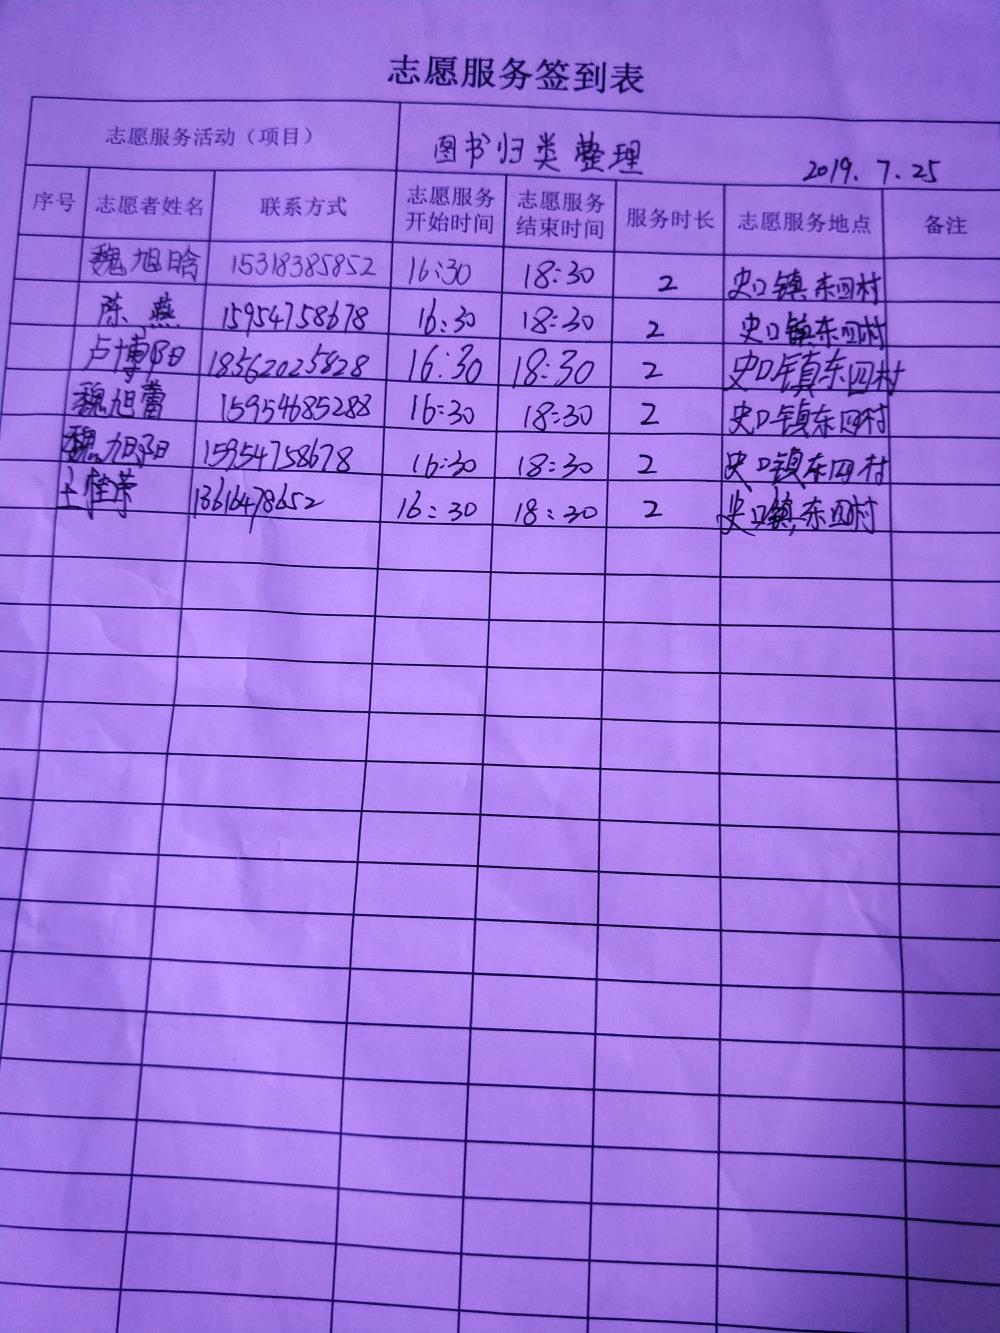 志愿服务签到表
志愿服务活动（项目） 图书归类整理 2019.7.25
序号 志愿者姓名 联系方式 志愿服务开始时间 志愿服务结束时间 服务时长 志愿服务地点 备注
魏旭晗 15318385852 16:30 18:30 2 史口镇东四村
陈燕 15954758678 16:30 18:30 2 史口镇东四村
卢博阳 18562025828 16:30 18:30 2 史口镇东四村
魏旭蕾 15954685288 16:30 18:30 2 史口镇东四村
魏旭阳 15954758678 16:30 18:30 2 史口镇东四村
王桂荣 13616478652 16:30 18:30 2 史口镇东四村